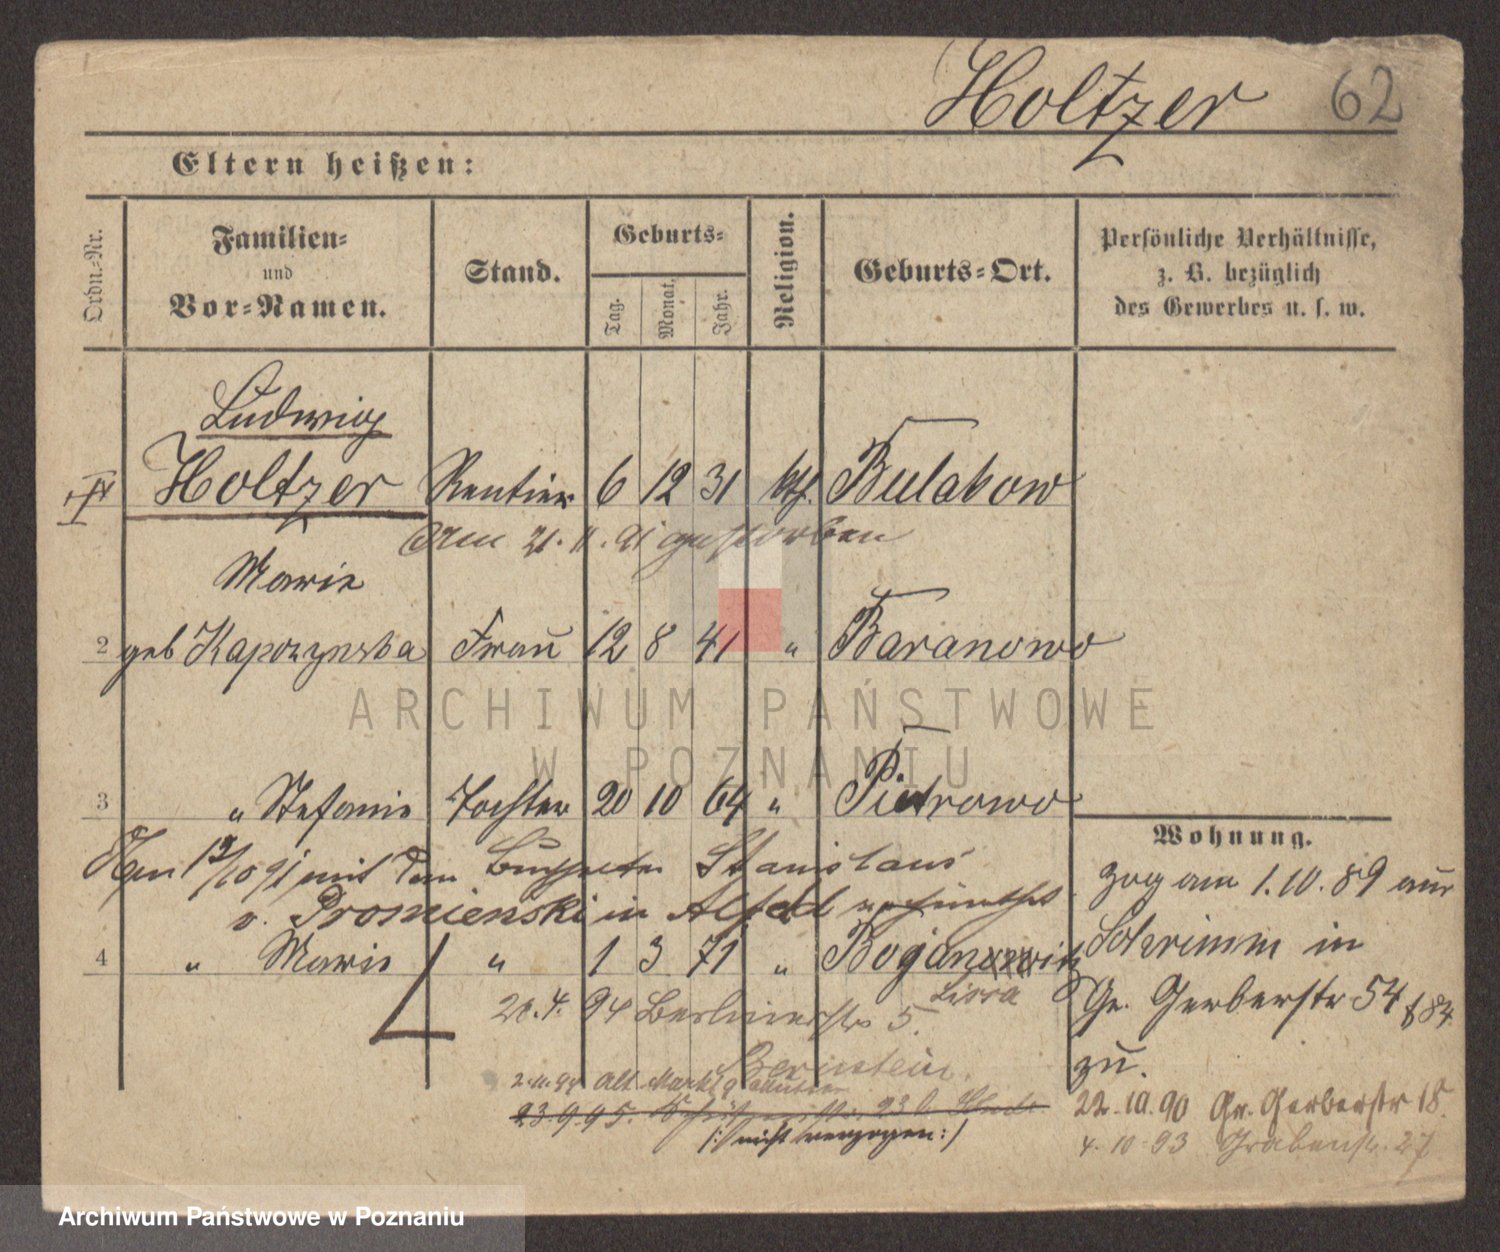 Holtzer 62
Eltern heißen:
Ordn.-Nr.
Familien-
und
Vor-Namen.
Stand.
Geburts-
Tag.
Monat.
Jahr.
Religion.
Geburts-Ort.
Persönliche Verhältnisse,
z. B. bezüglich
des Gewerbes u. s. w.
Ludwig
Holtzer Rentier 6 12 31 kth. Bulakow
Am 21. 11. 91 gestorben
Marie
2 geb Kaporzynska Frau 12 8 41 " Baranowo
ARCHIWUM PAŃSTWOWE
W POZNANIU
3 " Stefanie Tochter 20 10 64 " Pietrowo
Am 12/10 91 mit dem Stanislaus
v. Promienski in verheirathet
4 " Marie " 1 3 71 "
Lissa
20.4. 94 Berlinerstr 5.
Bernstein.
2.11.94 Alt Markt 9
23.9.95.
/: nicht verzogen :/
Wohnung.
zog am 1.10.89 aus
Schrimm in
Gr. Gerberstr 54
zu.
22.10.90 Gr. Gerberstr 18.
4.10.93 Grabenstr. 27
Archiwum Państwowe w Poznaniu